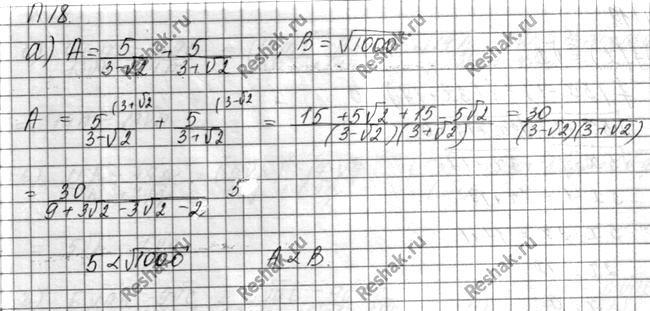 П 18.
а) A = 5/(3-√2) + 5/(3+√2) ; B = √1000
A = 5/(3-√2) (3+√2 + 5/(3+√2) (3-√2 = (15 + 5√2 + 15 - 5√2)/((3-√2)(3+√2)) = 30/((3-√2)(3+√2))
= 30/(9+3√2-3√2-2) 5
5 < √1000 A < B.
Reshak.ru
Reshak.ru
Reshak.ru
Reshak.ru
Reshak.ru
Reshak.ru
Reshak.ru
Reshak.ru
Reshak.ru